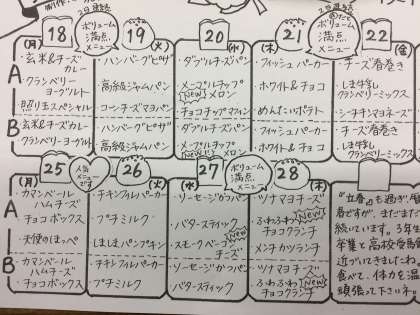 ボリューム
満点
メニュー
ボリューム
満点
メニュー
18
(月)
A
・玄米&チーズ
カレー
クランベリー
ヨーグルト
・照り玉スペシャル
B
・玄米&チーズカレー
クランベリーヨーグルト
19
(火)
・ハンバーグピザ
・高級ジャムパン
・コーンチーズマヨパン
・ハンバーグピザ
・高級ジャムパン
20
(水)
・ダブルチーズパン
・メープルチップ
NEW メロン
・チョコチップマフィン
・ダブルチーズパン
・メープルチップ
NEW メロン
21
(木)
・フィッシュバーガー
・ホワイト&チョコ
・めんたいポテト
・フィッシュバーガー
・ホワイト&チョコ
22
(金)
・チーズ春巻き
・しま牛乳
クランベリーミックス
・シーチキンマヨネーズ
・チーズ春巻き
・しま牛乳
クランベリーミックス
25
人気
メニュー
です
(月)
A
・カマンベール
ハムチーズ
チョコボックス
・天使のほっぺ
B
・カマンベール
ハムチーズ
・チョコボックス
26
(火)
・チキンフィルバーガー
・プチミルク
・しましまパンプキン
・チキンフィルバーガー
・プチミルク
27
(水)
ボリューム
満点
メニュー
・ソーセージかつパン
・バタースティック
・スモークベーコン
チーズ
・ソーセージかつパン
・バタースティック
28
(木)
・ツナマヨチーズ
・ふわふわ NEW
チョコクランチ
・メンチカツランチ
・ツナマヨチーズ
・ふわふわ NEW
チョコクランチ
"立春"をも過ぎ、暦
春ですが、まだまだ
続いています。3年生
卒業と高校受験
近がってきました
食べて、体力を温
頑張って下さいネ。